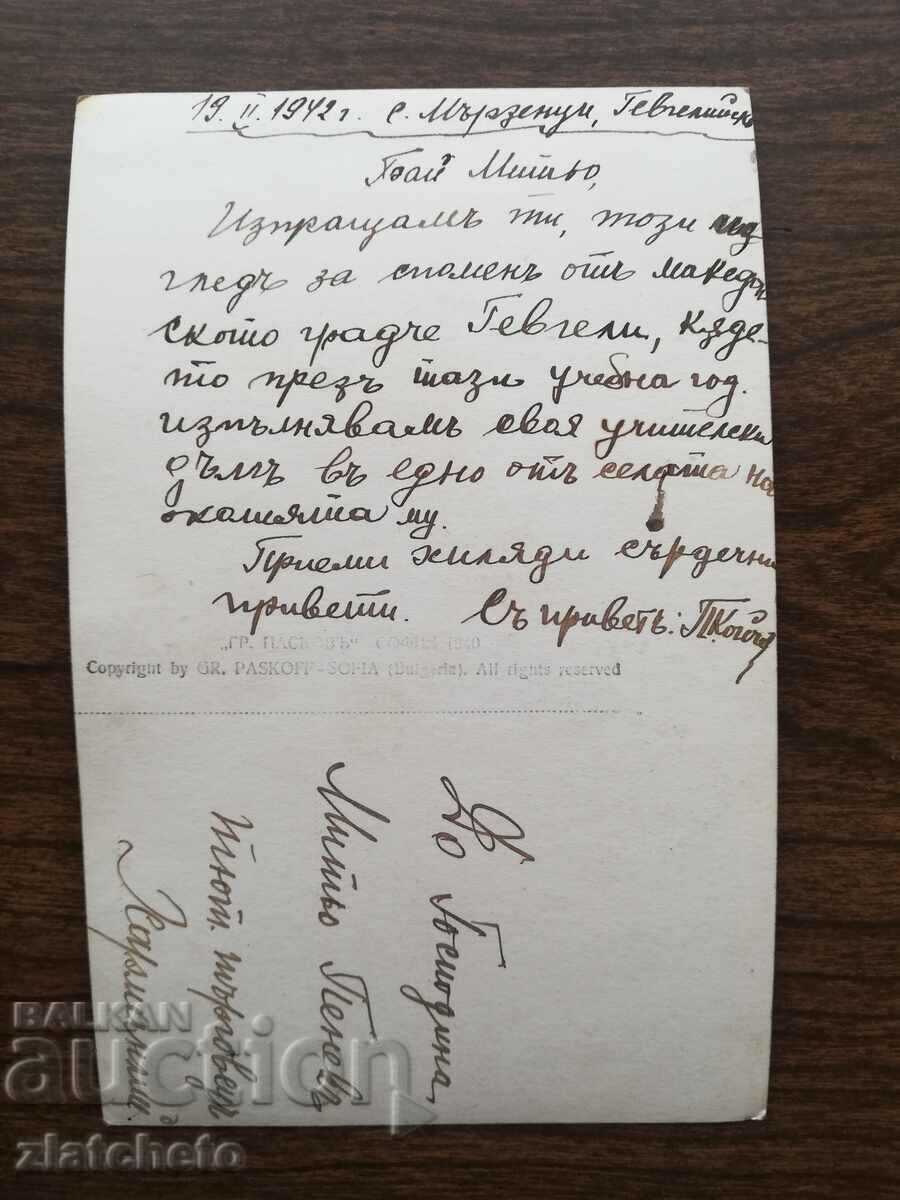 19. II. 1942 г. с. Мързенци, Гевгелийско
Бай Митьо,
Изпращамъ ти, този из
гледъ за споменъ отъ македон
ското градче Гевгели, кѫде-
то презъ тази учебна год.
изпълнявамъ своя учителски
дългъ въ едно отъ селата на
околията му.
Приеми хиляди сърдечни
привети. Съ приветъ:
„ГР. ПАСКОВЪ" СОФИЯ 1940
Copyright by GR. PASKOFF-SOFIA (Bulgaria). All rights reserved
До Господина
Митьо Пеневъ
тют. търговецъ
BALKAN
auction
zlatcheto